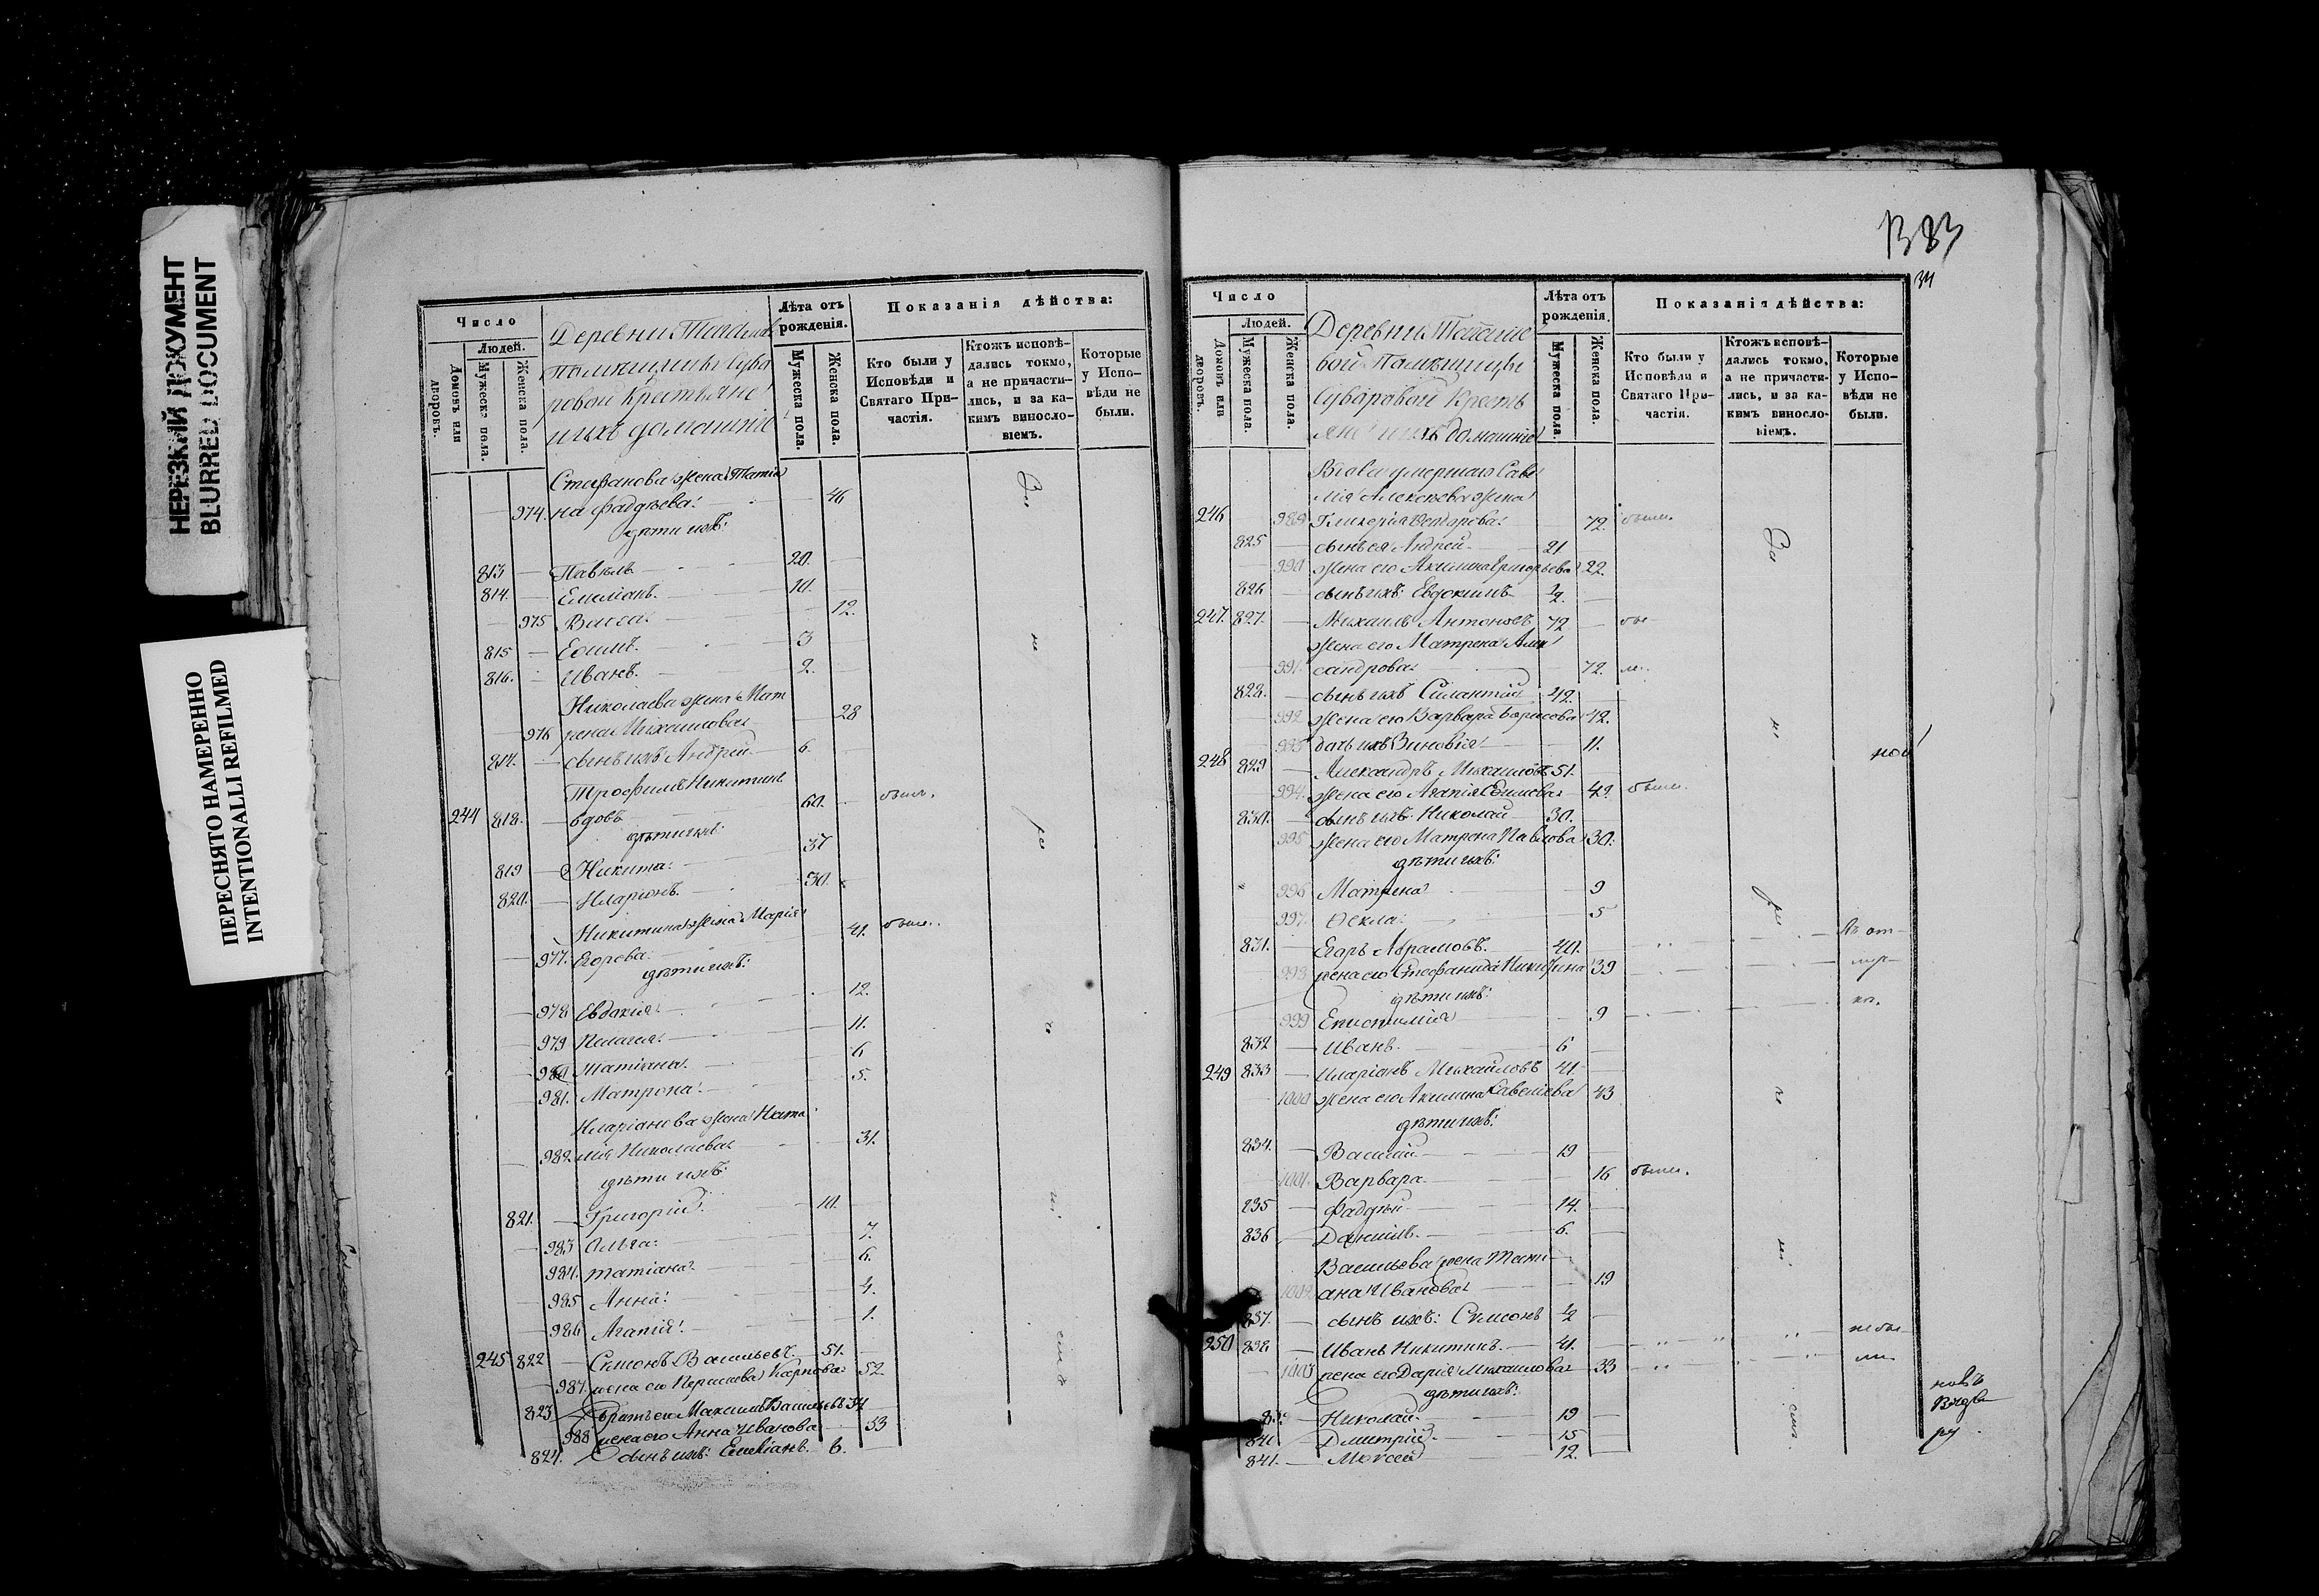 НЕРЕЗКИЙ ДОКУМЕНТ
BLURRED DOCUMENT
ПЕРЕСНЯТО НАМЕРЕННО
INTENTIONALLI REFILMED
Число
Людей.
Домовъ или дворовъ.
Мужеска пола.
Женска пола.
Деревни
помѣщицы Сува
ровой Крестьяне
ихъ домашніе
Лѣта отъ рожденія.
Мужеска пола.
Женска пола.
Показанія дѣйства:
Кто были у Исповѣди и Святаго Причастія.
Ктожъ исповѣдались токмо, а не причастились, и за какимъ винословіемъ.
Которые у Исповѣди не были.
Стефанова жена Татіа
974. на Фадѣева 46
дѣти ихъ:
813 Павелъ 20.
814. Емеліанъ. 10.
975 Васса. 12.
815 Ефимъ. 3
816. Иванъ. 2.
Николаева жена Мат
976 рена Михаилова 28
817. сынъ ихъ Андрей 6.
Трофимъ Никитинъ
244 818. вдовъ 60. были.
дѣти ихъ:
819 Никита. 37
820. Иларіонъ. 30.
Никитина жена Марія
977. Егорова. 41. были.
дѣти ихъ:
978 Евдокія 12.
979 Пелагея. 11.
980 Татіана. 6
981. Матрона. 5.
Иларіонова жена Ната
982 лія Николаева 31.
дѣти ихъ:
821. Григорій. 10.
983 Ольга. 7.
984. Татіана. 6.
985 Анна. 4.
986 Агапія. 1.
245 822 Симонъ Васильевъ. 51.
987. жена его Карпова 52.
823 братъ его Максимъ Васильевъ 34
988 жена его Анна Иванова 33
824. сынъ ихъ: Емеліанъ. 6.
1383
34
Число
Людей.
Домовъ или дворовъ.
Мужеска пола.
Женска пола.
Деревни
вой Помѣщицы
Суваровой Кресть
яне ихъ домашніе
Лѣта отъ рожденія.
Мужеска пола.
Женска пола.
Показанія дѣйства:
Кто были у Исповѣди и Святаго Причастія.
Ктожъ исповѣдались токмо, а не причастились, и за какимъ винословіемъ.
Которые у Исповѣди не были.
Вдова умершаго Саве
лія Алексѣева жена
246 989 Гликерія Ѳедорова 72. были.
825 сынъ ея Андрей 21
990 жена его Акилина Григорьева 22.
826 сынъ ихъ: Евдокимъ ½.
247. 827. Михаилъ Антоновъ 72 бы
жена его Матрена Алек
991. сандрова 72. ли.
828. сынъ ихъ Силантій 42.
992 жена его Варвара Борисова 42.
993 дочь ихъ Зиновія 11.
248 829 Александръ Михаиловъ 51.
994. жена его Агапія Ефимова 49. были.
830. сынъ ихъ Николай 30.
995 жена его Матрена Павлова 30.
дѣти ихъ:
996 Матрена 9
997. Ѳекла. 5
831. Егоръ Абрамовъ. 40.
998 жена его Стефанида Никитина 39
дѣти ихъ:
999 Епистимія 9
832 Иванъ. 6
249 833 Иларіонъ Михайловъ 41
1000 жена его Акилина Савельева 43
дѣти ихъ:
834. Василій 19
1001. Варвара. 16 были.
835 Фадѣй 14.
836 Даніилъ. 6.
Васильева жена Тати
1002 ана Иванова 19
837. сынъ ихъ: Симонъ ½
250 838 Иванъ Никитинъ. 41. не бы
1003 жена его Дарія Михаилова 33 ли
дѣти ихъ:
839 Николай. 19
840 Дмитрій. 15
841. Моисей 12.